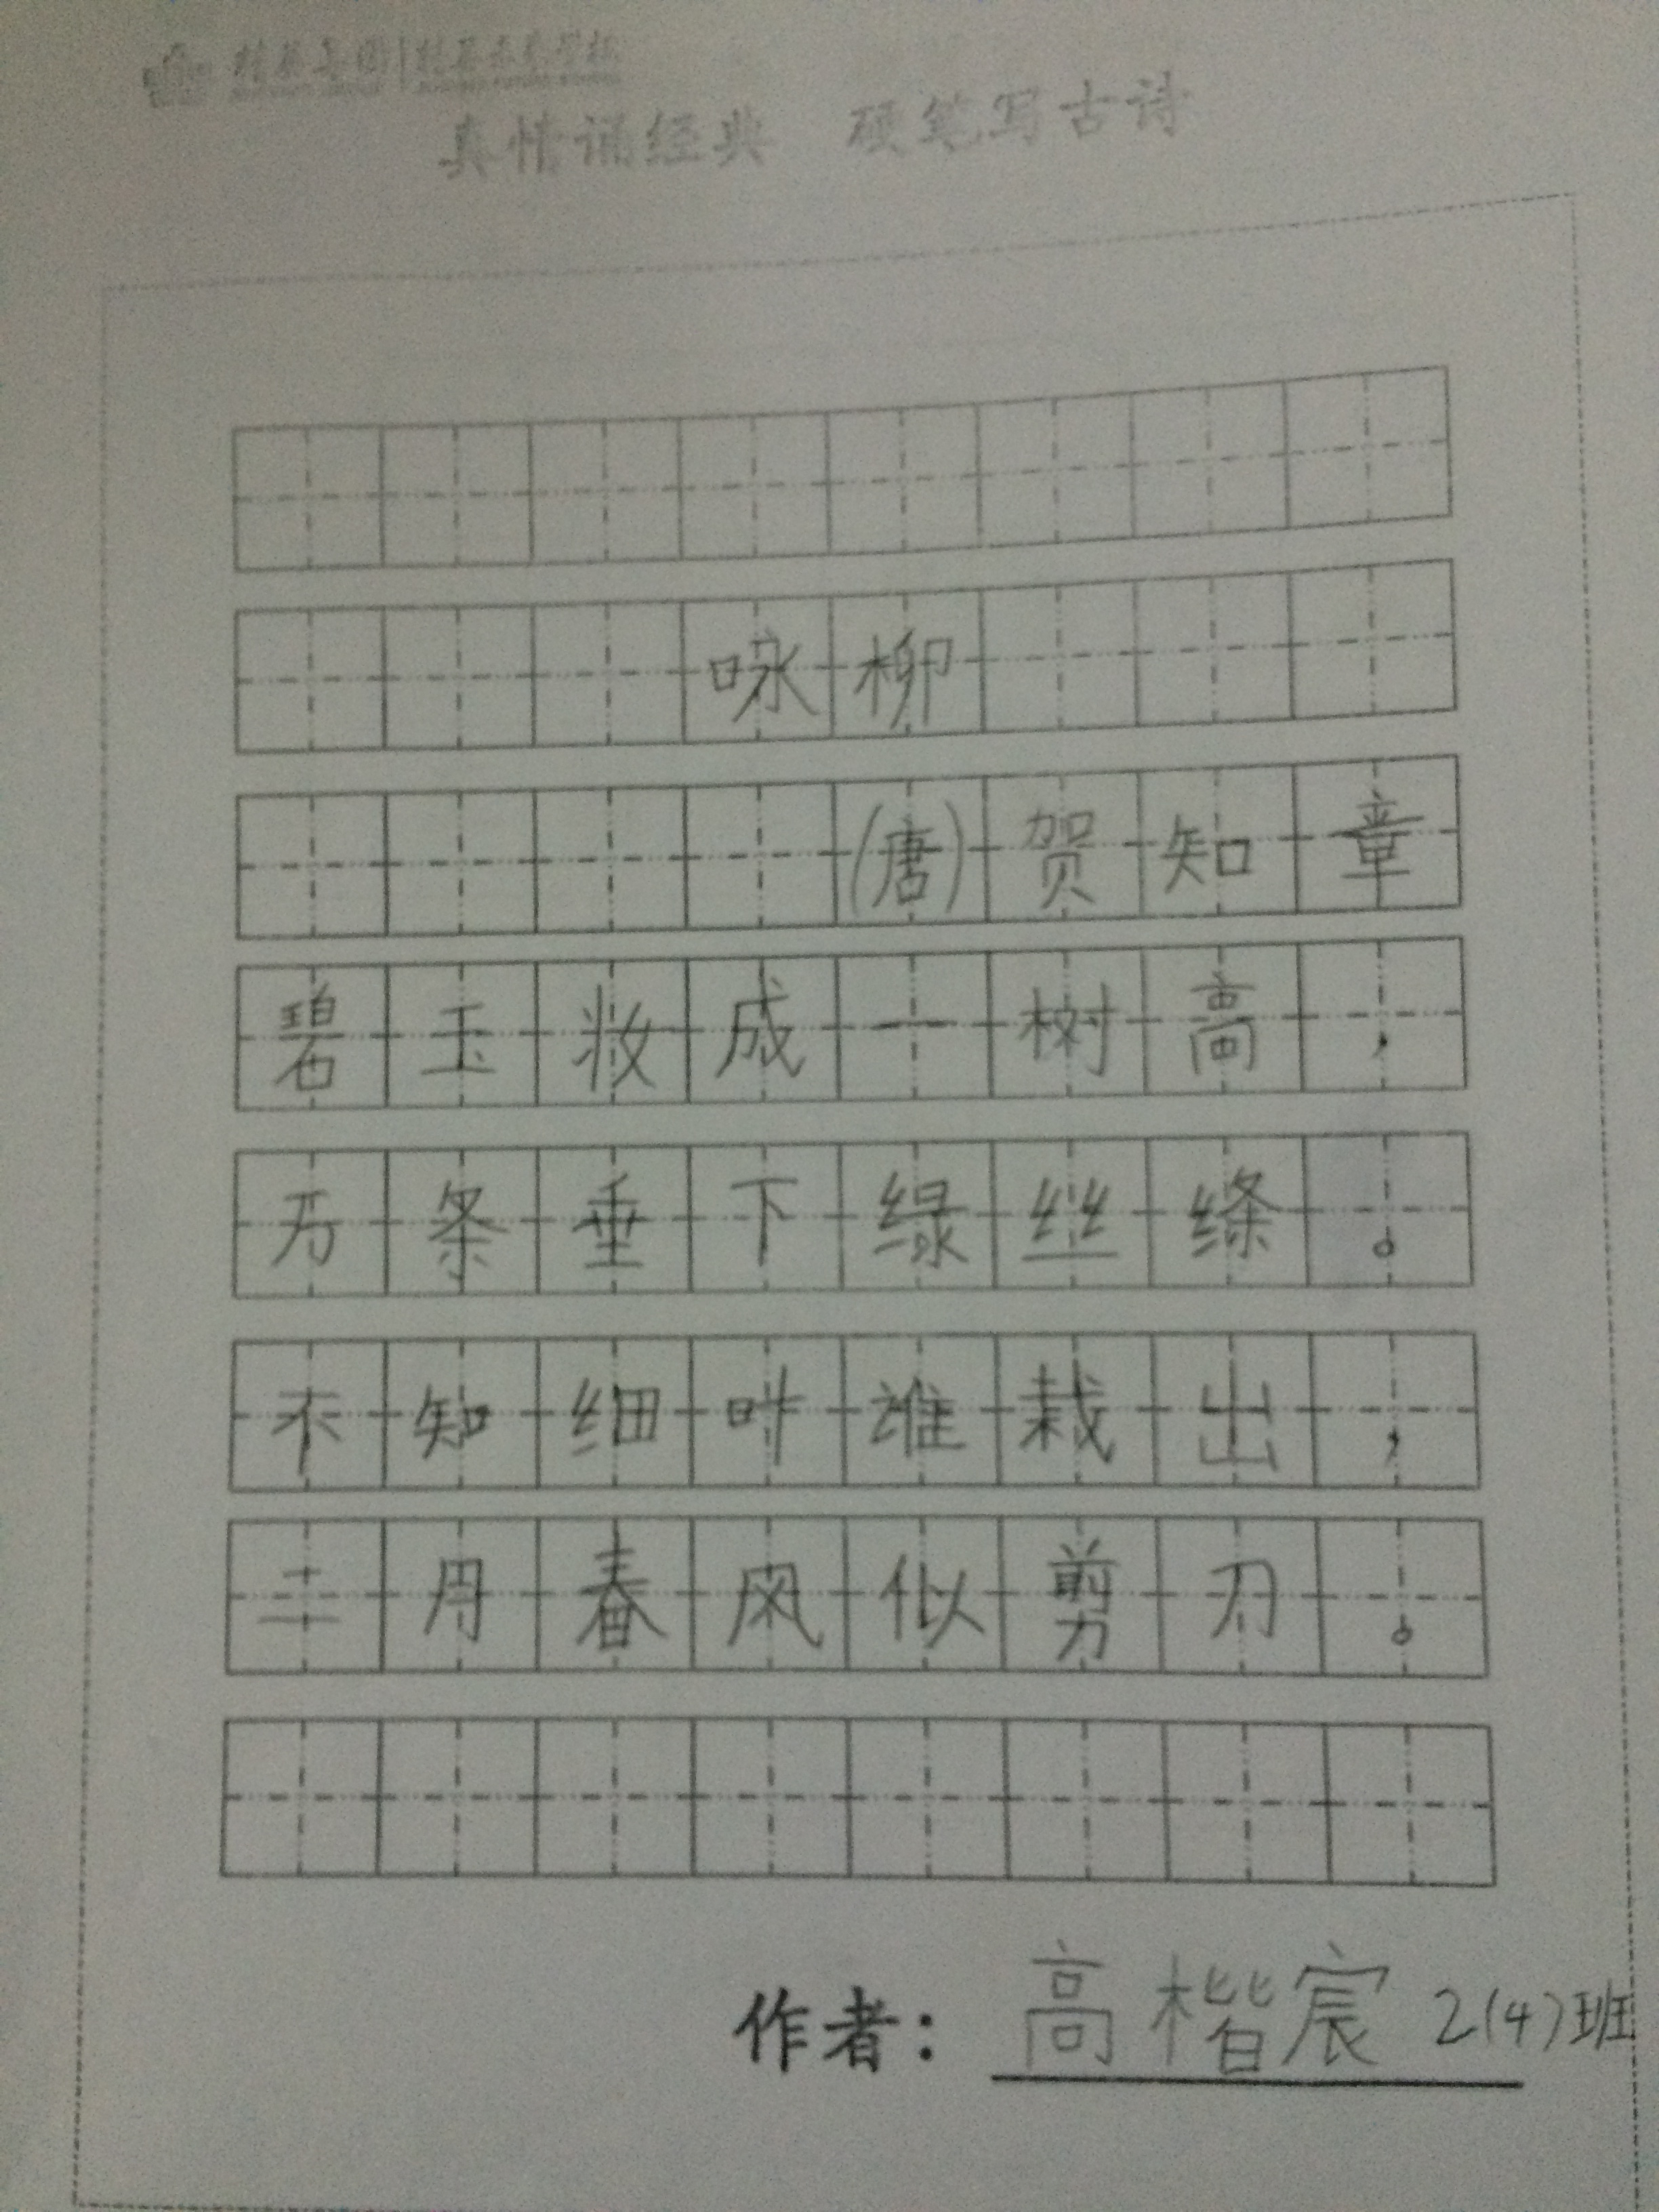 真情诵经典 硬笔写古诗
咏柳
(唐)贺知章
碧玉妆成一树高，
万条垂下绿丝绦。
不知细叶谁栽出，
三月春风似剪刀。
作者：高楷宸 2(4)班